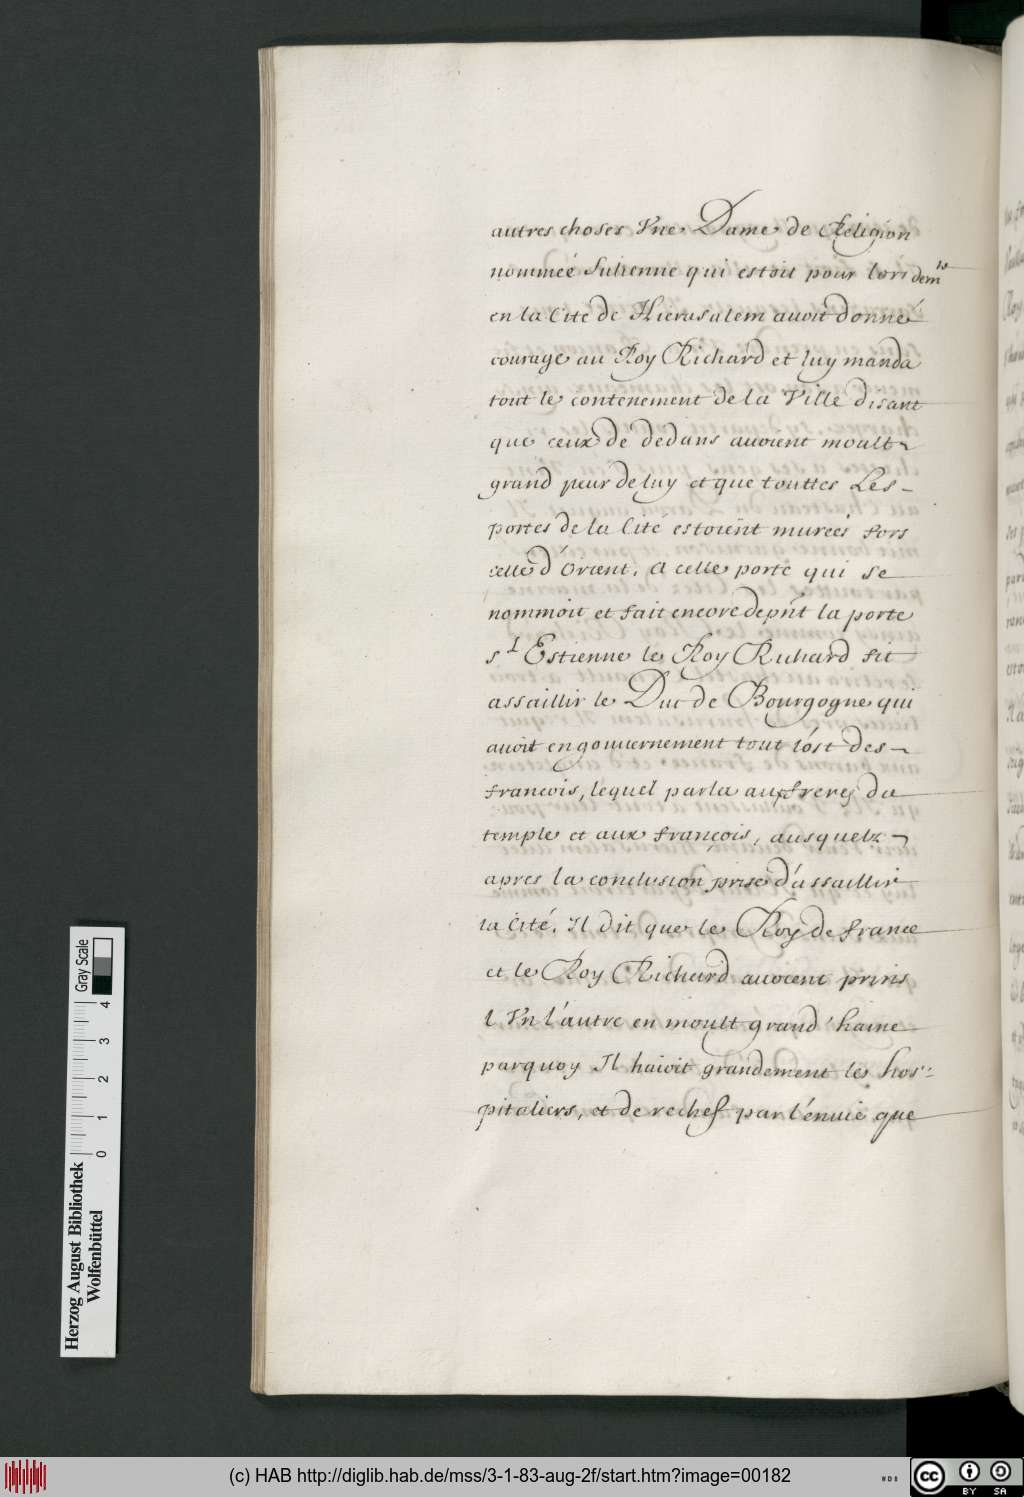 autres choses Vne Dame de Religion
nommeé Julienne qui estoit pour lors dem.te
en la Cité de Hierusalem auoit donné
courage au Roy Richard et luy manda
tout le contenement de la Ville disant
que ceux de dedans auoient moult
grand peur de luy et que touttes Les
portes de la Cité estoient mureés fors
celle d'Orient. A celle porte qui se
nommoit et fait encore de pñt la porte
St Estienne le Roy Richard fit
assaillir le Duc de Bourgogne qui
auoit en gouuernement tout l'óst des
francois, lequel parla aux freres du
temple et aux françois, ausquelz
apres la conclusion prise d'assaillir
la Cité. Il dit que le Roy de france
et le Roy Richard auoient prins
l Vn l'autre en moult grand haine
parquoy Il haioit grandement les hos-
pitaliers, et de rechef par l'énuie que
Herzog August Bibliothek
Wolfenbüttel
0 1 2 3 4
Gray Scale
(c) HAB http://diglib.hab.de/mss/3-1-83-aug-2f/start.htm?image=00182
WDB
cc
BY SA